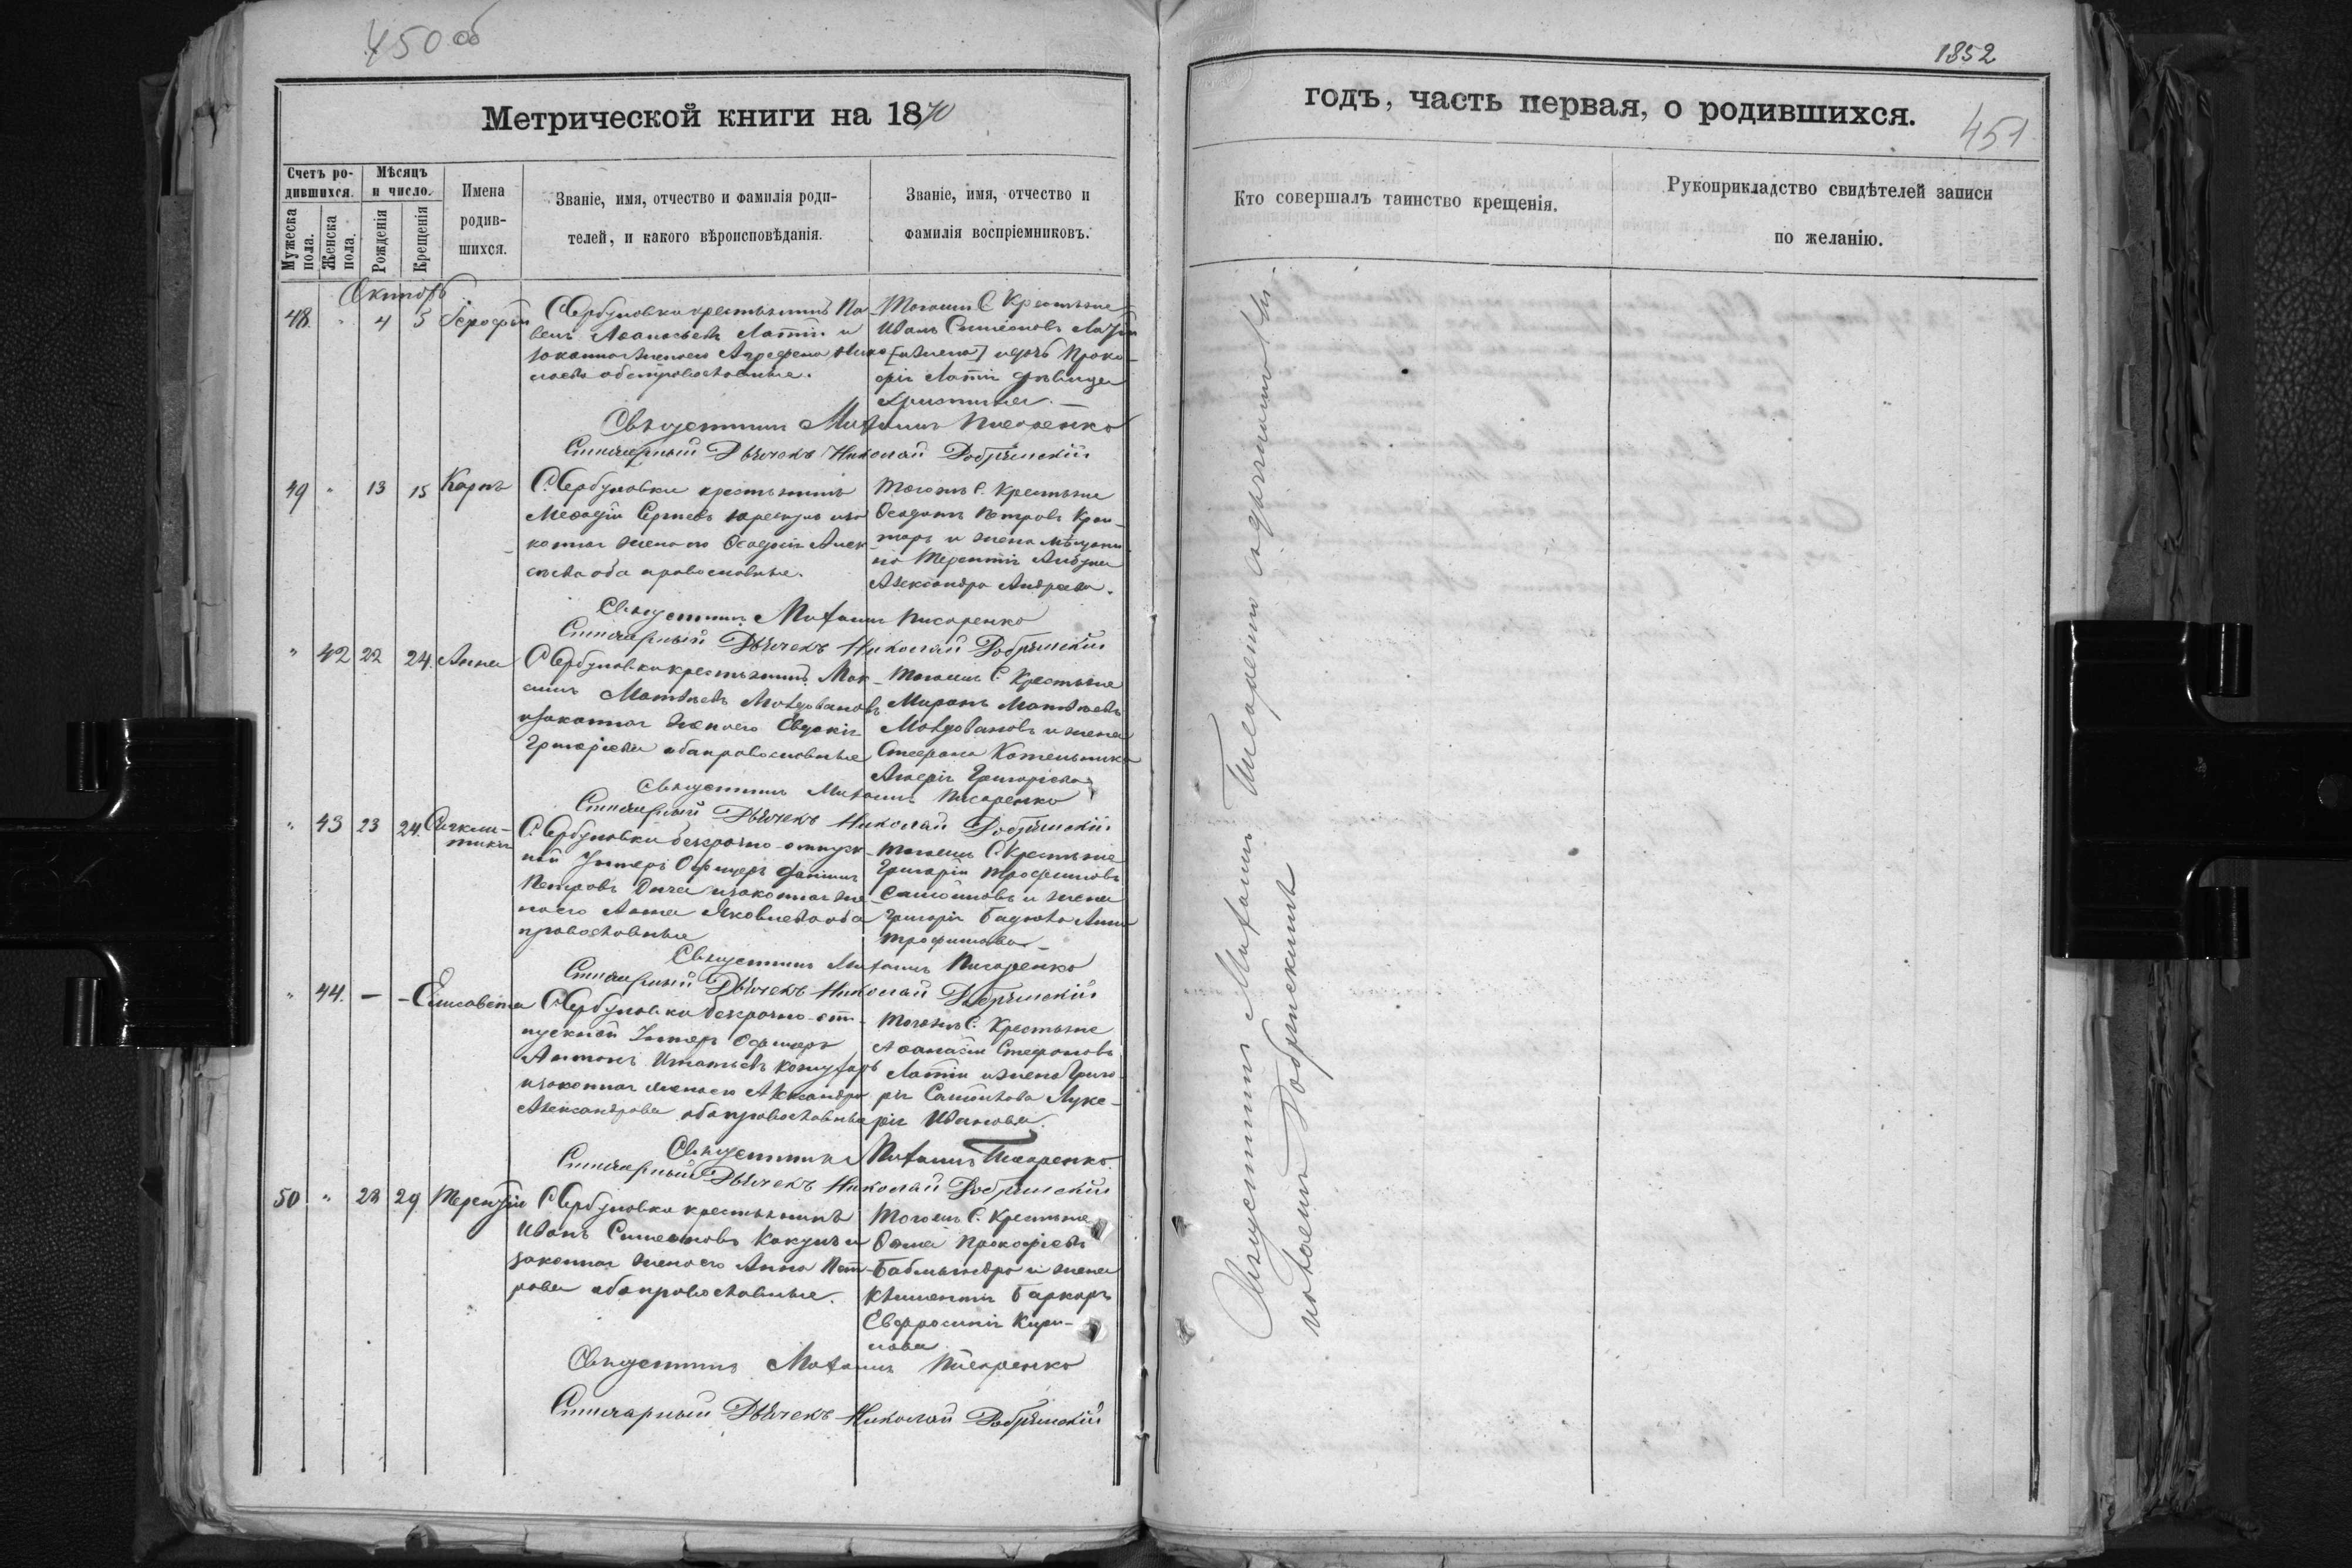 450 об
Метрической книги на 1870
Счетъ ро-
дившихся.
Мужеска
пола.
Женска
пола.
Мѣсяцъ
и число.
Рожденія
Крещенія
Имена
родив-
шихся.
Званіе, имя, отчество и фамилія роди-
телей, и какого вѣроисповѣданія.
Званіе, имя, отчество и
фамилія воспріемниковъ.
Октябр
48. " 4 5 Іероѳей
С. Ербуловки крестьянинъ Па-
велъ Аѳанасьевъ Латій и
законная жена его Агрефена
обаправославные.
Тогоже С. Крестьяне
Иванъ Симеоновъ
[ижена] идочь Проко-
фія Латія дѣвица
Христина.
Священникъ Михаилъ Писаренко
Стихарный Дьячекъ Николай Добрянскій
49 " 13 15 Карпъ
С. Ербуловки крестьянинъ
Меѳодій Сергіевъ иза-
конная жена его Агаѳія Алек-
сѣева оба православные.
Тогожъ С. Крестьяне
Петровъ
и жена мѣщани-
на Терентія
Александра Андреева.
Священникъ Михаилъ Писаренко
Стихарный Дьячекъ Николай Добрянскій
" 42 22 24. Анна
С. Ербуловки крестьянинъ Мак-
симъ Матѳеевъ Молдовановъ
изаконная жена его Евдокія
Григоріева обаправославные
Тогожъ С. Крестьяне
Миронъ Матѳеевъ
Молдовановъ и жена
Стефана Котельника
Григоріева
Священникъ Михаилъ Писаренко
Стихарный Дьячекъ Николай Добрянскій
" 43 23 24.
С. Ербуловки безсрочно-отпуск-
ный Унтеръ Офицеръ Даніилъ
Петровъ изаконная же-
на его Анна Яковлева оба
православные
Тогожъ С. Крестьяне
Григорій Трофимовъ
Самойловъ и жена
Григорія Анна
Трофимова
Священникъ Михаилъ Писаренко
Стихарный Дьячекъ Николай Добрянскій
" 44. — - Елисавета
С. Ербуловки безсрочно-от-
пускной Унтеръ Офицеръ
Антонъ Игнатьевъ
изаконная жена его Александра
Александрова обаправославные
Тогожъ С. Крестьяне
Аѳанасій Стефановъ
Латій ижена Григо-
рія Самойлова Луке-
рія Иванова.
Священникъ Михаилъ Писаренко.
Стихарный Дьячекъ Николай Добрянскій
50 " 28 29 Терентій
С. Ербуловки крестьянинъ
Иванъ Симеоновъ и
законная жена его Анна Пет-
рова обаправославные.
Тогожъ С. Крестьяне
Ѳома Прокофіевъ
и жена
Климентія
Евфросинія Кири-
лова
Священникъ Михаилъ Писаренко
Стихарный Дьячекъ Николай Добрянскій
1852
451
годъ, часть первая, о родившихся.
Кто совершалъ таинство крещенія.
Рукоприкладство свидѣтелей записи
по желанію.
Священникъ Михаилъ Писаренко
Николаемъ Добрянскимъ